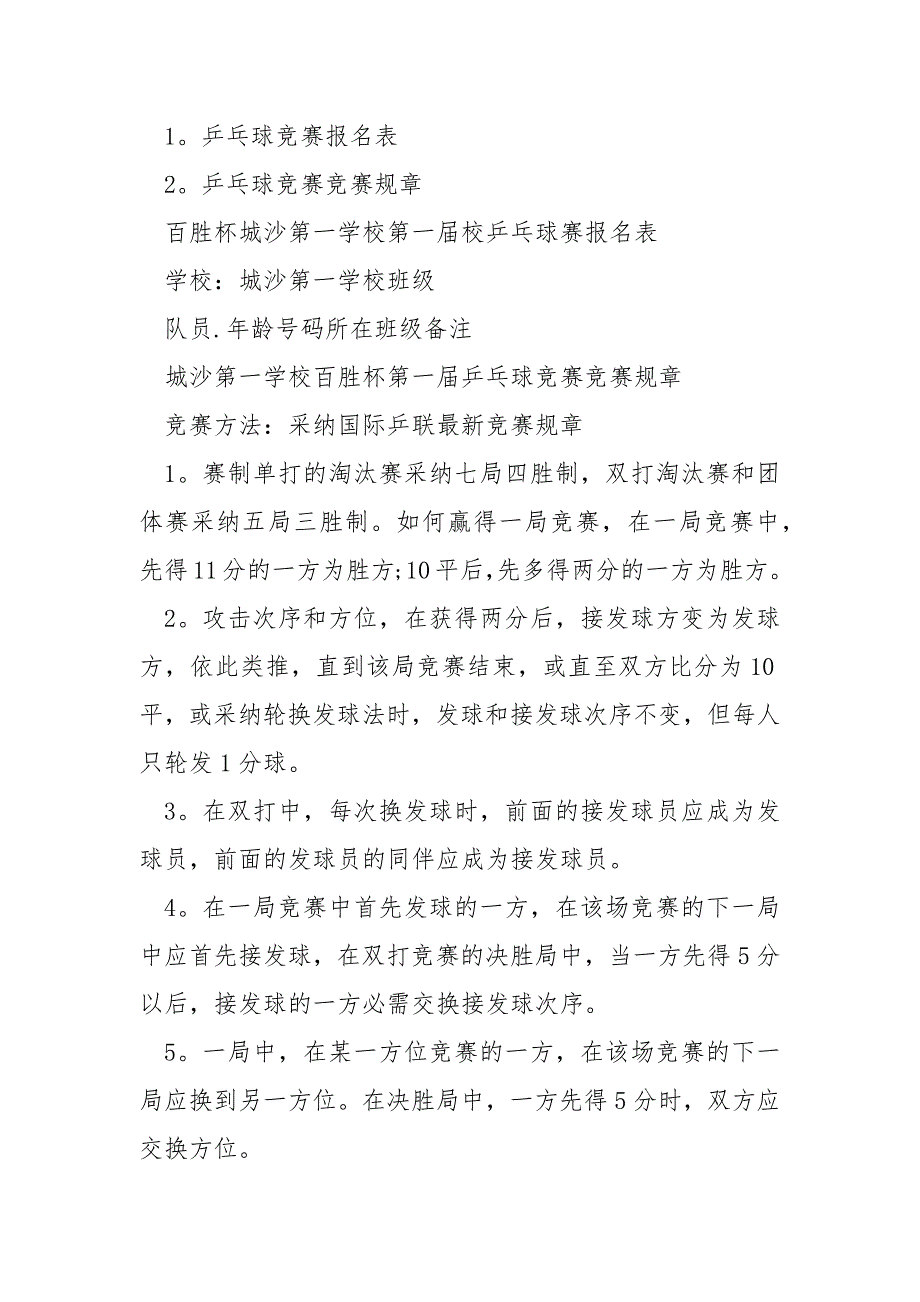 1。乒乓球竞赛报名表
2。乒乓球竞赛竞赛规章
百胜杯城沙第一学校第一届校乒乓球赛报名表
学校：城沙第一学校班级
队员.年龄号码所在班级备注
城沙第一学校百胜杯第一届乒乓球竞赛竞赛规章
竞赛方法：采纳国际乒联最新竞赛规章
1。赛制单打的淘汰赛采纳七局四胜制，双打淘汰赛和团
体赛采纳五局三胜制。如何赢得一局竞赛，在一局竞赛中，
先得11分的一方为胜方;10平后,先多得两分的一方为胜方。
2。攻击次序和方位，在获得两分后，接发球方变为发球
方，依此类推，直到该局竞赛结束，或直至双方比分为10
平，或采纳轮换发球法时，发球和接发球次序不变，但每人
只轮发1分球。
3。在双打中，每次换发球时，前面的接发球员应成为发
球员，前面的发球员的同伴应成为接发球员。
4。在一局竞赛中首先发球的一方，在该场竞赛的下一局
中应首先接发球，在双打竞赛的决胜局中，当一方先得5分
以后，接发球的一方必需交换接发球次序。
5。一局中，在某一方位竞赛的一方，在该场竞赛的下一
局应换到另一方位。在决胜局中，一方先得5分时，双方应
交换方位。